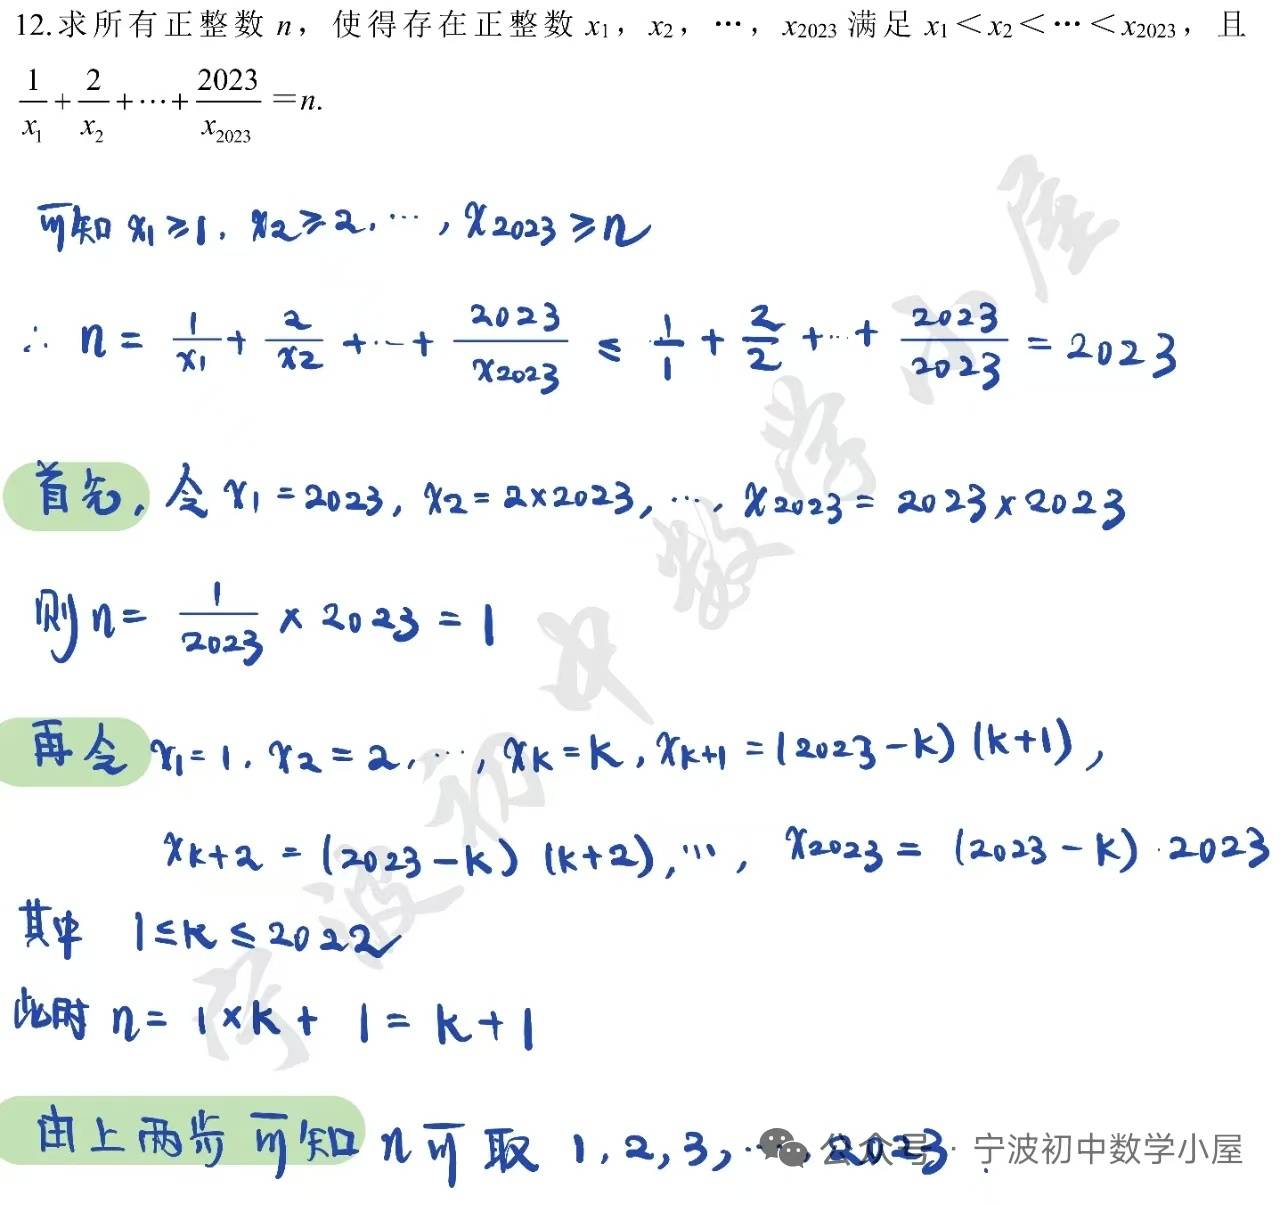 12.求所有正整数 n，使得存在正整数 x₁，x₂，…，x₂₀₂₃ 满足 x₁＜x₂＜…＜x₂₀₂₃，且
1/x₁+2/x₂+…+2023/x₂₀₂₃=n.
可知 x₁≥1, x₂≥2, …, x₂₀₂₃≥n
∴ n = 1/x₁ + 2/x₂ + … + 2023/x₂₀₂₃ ≤ 1/1 + 2/2 + … + 2023/2023 = 2023
首先, 令 x₁=2023, x₂=2×2023, …, x₂₀₂₃=2023×2023
则 n= 1/2023 × 2023 = 1
再令 x₁=1, x₂=2, …, x_k=k, x_{k+1}=(2023-k)(k+1),
x_{k+2}=(2023-k)(k+2), …, x₂₀₂₃=(2023-k)·2023
其中 1≤k≤2022
此时 n= 1×k + 1 = k+1
由上两步可知 n可取 1, 2, 3, …, 2023.
公众号 · 宁波初中数学小屋
宁波初中数学小屋